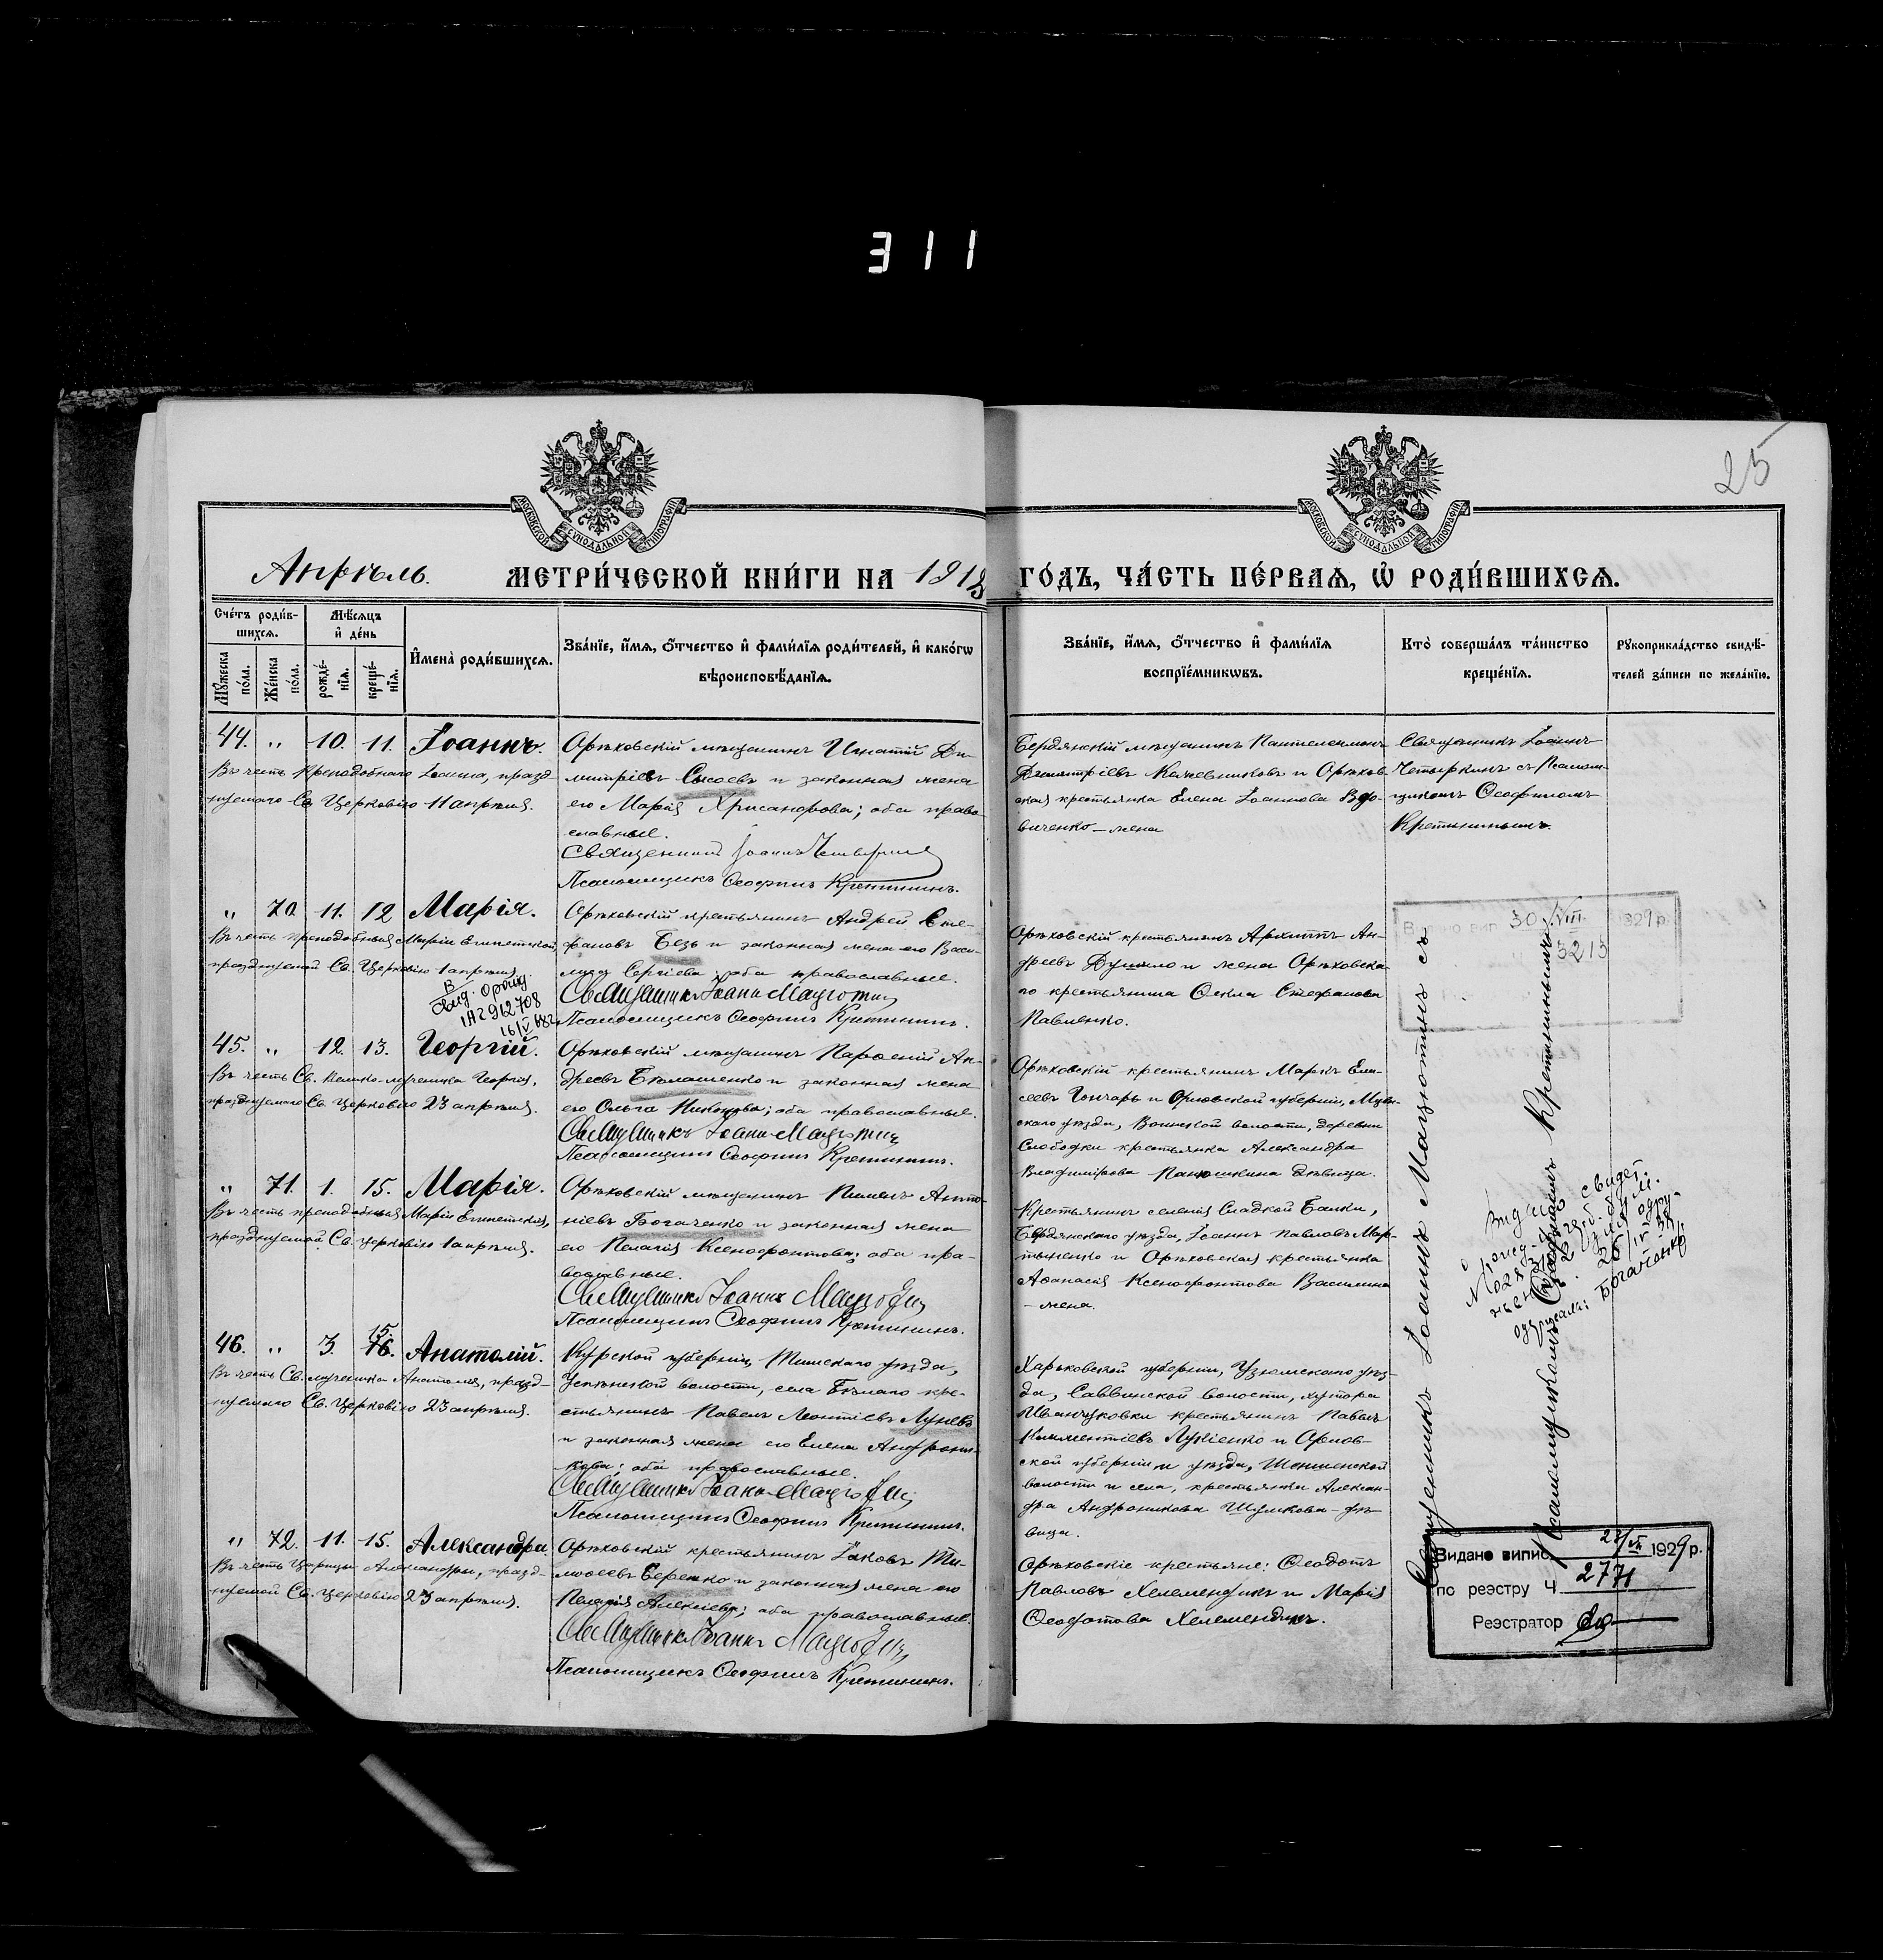 311
25
МОСКОВСКОЙ СУНОДАЛЬНОЙ ТИПОГРАФІИ
МОСКОВСКОЙ СУНОДАЛЬНОЙ ТИПОГРАФІИ
Апрѣль.
МЕТРИ́ЧЕСКОЙ КНИ́ГИ НА 1913 ГО́ДЪ, ЧА́СТЬ ПЕ́РВАѦ, Ѡ҆ РОДИ́ВШИХСѦ.
Сче́тъ роди́в-
шихсѧ.
Мꙋ́жеска по́ла.
Же́нска по́ла.
Мѣ́сѧцъ
и҆ де́нь
рожде́-
нїѧ.
креще́-
нїѧ.
И҆мена̀ роди́вшихсѧ.
Зва́нїе, и҆́мѧ, ѻ҆́тчество и҆ фами́лїѧ роди́телей, и҆ како́гѡ
вѣроисповѣ́данїѧ.
Зва́нїе, и҆́мѧ, ѻ҆́тчество и҆ фами́лїѧ
воспрїе́мникѡвъ.
Кто̀ соверша́лъ та́инство
креще́нїѧ.
Рꙋкоприкла́дство свидѣ́-
телей за́писи по жела́нїю.
44. „ 10. 11. Іоаннъ.
Въ честь Преподобнаго Іоанна, празд-
нуемаго Св. Церковію 11 апрѣля.
Орѣховскій мѣщанинъ Игнатій Ди-
митріевъ Сысоевъ и законная жена
его Марія Хрисанфова; оба право-
славные.
Священникъ Іоаннъ Четыркинъ
Псаломщикъ Ѳеофилъ Кретининъ.
Бердянскій мѣщанинъ Пантелеимонъ
Димитріевъ Кочевниковъ и Орѣхов-
ская крестьянка Елена Іоаннова Вдо-
виченко – жена
Священникъ Іоаннъ
Четыркинъ съ Псалом-
щикомъ Ѳеофиломъ
Кретининымъ.
„ 70. 11. 12 Марія.
Въ честь преподобныя Маріи Египетской,
празднуемой Св. Церковію 1 апрѣля.
Орѣховскій крестьянинъ Андрей Сте-
фановъ Безъ и законная жена его Васи-
лиса Сергіева; оба православные.
Священникъ Іоаннъ Мацготинъ
Псаломщикъ Ѳеофилъ Кретининъ.
Орѣховскій крестьянинъ Архиппъ Ан-
дреевъ и жена Орѣховска-
го крестьянина Ѳекла Стефанова
Павленко.
1А2 912708
16/V
Видано вип. 30/VIII 1929 р.
3213
45. „ 12. 13. Георгій.
Въ честь Св. Велико-мученика Георгія,
празднуемаго Св. Церковію 23 апрѣля.
Орѣховскій мѣщанинъ Парѳеній Ан-
дреевъ Бѣлашенко и законная жена
его Ольга Никонова; оба православные.
Священникъ Іоаннъ Мацготинъ
Псаломщикъ Ѳеофилъ Кретининъ.
Орѣховскій крестьянинъ Маркъ Ели-
сеевъ Гончаръ и Орловской губерніи, Мцен-
скаго уѣзда, Воинской волости, деревни
Слободки крестьянка Александра
Владимірова Панюшкина дѣвица.
„ 71. 1. 15. Марія.
Въ честь преподобныя Маріи Египетскія,
празднуемой Св. Церковію 1 апрѣля.
Орѣховскій мѣщанинъ Пименъ Анто-
ніевъ Богаченко и законная жена
его Пелагія Ксенофонтова; оба пра-
вославные.
Священникъ Іоаннъ Мацготинъ
Псаломщикъ Ѳеофилъ Кретининъ.
Крестьянинъ селенія Сладкой Балки,
Бердянскаго уѣзда, Іоаннъ Павловъ Мар-
тыненко и Орѣховская крестьянка
Аѳанасія Ксенофонтова Василина
– жена.
Священникъ Іоаннъ Мацготинъ съ
Псаломщикомъ Ѳеофиломъ Кретининымъ
46. „ 3. 15. 16. Анатолій.
Въ честь Св. мученика Анатолія, празд-
нуемаго Св. Церковію 23 апрѣля.
Курской губерніи, Тимскаго уѣзда,
Успенской волости, села Бѣлаго кре-
стьянинъ Павелъ Леонтіевъ Луневъ
и законная жена его Елена Андрони-
кова; оба православные.
Священникъ Іоаннъ Мацготинъ
Псаломщикъ Ѳеофилъ Кретининъ.
Харьковской губерніи, Изюмскаго уѣз-
да, Саввинской волости, хутора
Иванчуковки крестьянинъ Павелъ
Климентіевъ Лукіенко и Орлов-
ской губерніи и уѣзда,
волости и села, крестьянка Алексан-
дра Андроникова Шумкова – дѣ-
вица.
„ 72. 11. 15. Александра.
Въ честь Царицы Александры, празд-
нуемой Св. Церковію 23 апрѣля.
Орѣховскій крестьянинъ Іаковъ Ти-
моѳеевъ Беренко и законная жена его
Пелагія Алексіева; оба православные.
Священникъ Іоаннъ Мацготинъ
Псаломщикъ Ѳеофилъ Кретининъ.
Орѣховскіе крестьяне: Ѳеодотъ
Павловъ Хелемендикъ и Марія
Ѳеодотова Хелемендикъ.
Видано випис 23/VII 1929 р.
по реэстру Ч. 2771
Реэстратор